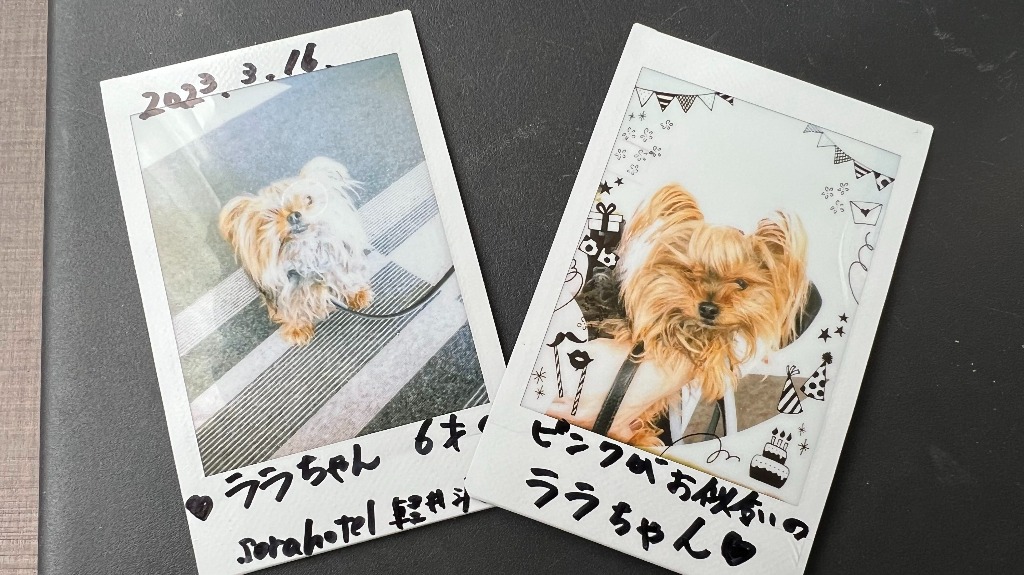 2023.3.16.
♥ ララちゃん 6才
sorahotel 軽井
ピンクがお似合いの
ララちゃん♥